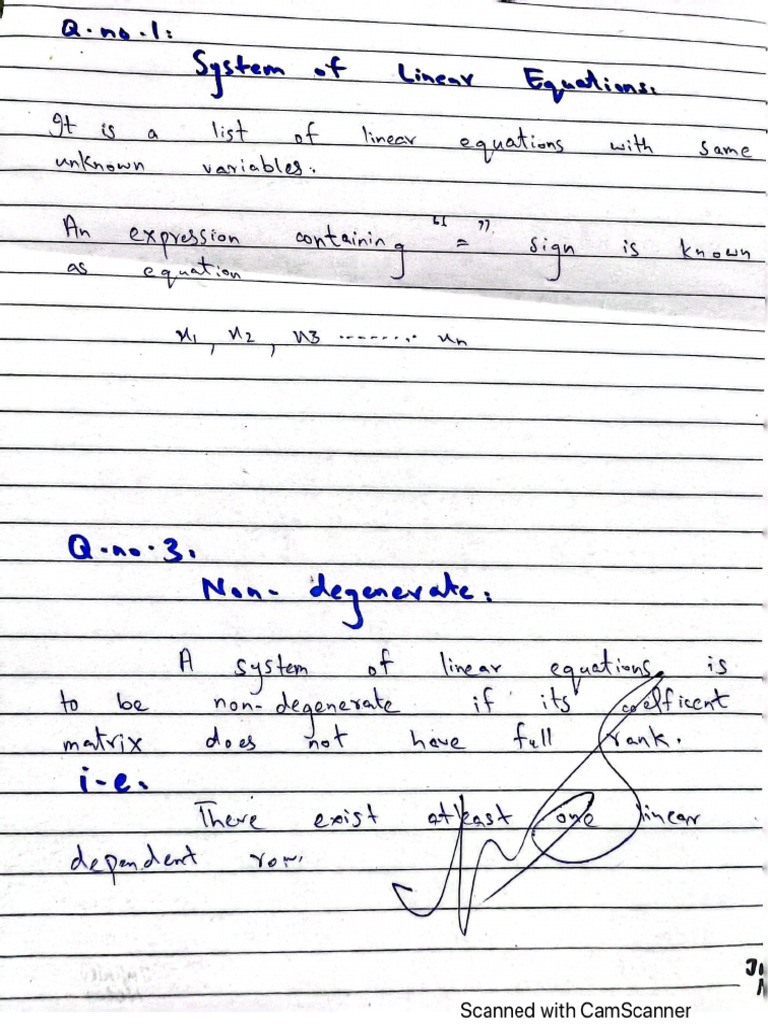 Q.no.1:
System of Linear Equations:
It is a list of linear equations with same
unknown variables.
An expression containing “ = ” sign is known
as equation
x1, x2, x3 ........ xn
Q.no.3.
Non-degenerate:
A system of linear equations is
to be non-degenerate if its coefficent
matrix does not have full rank.
i-e.
There exist atleast one linear
dependent row.
Scanned with CamScanner